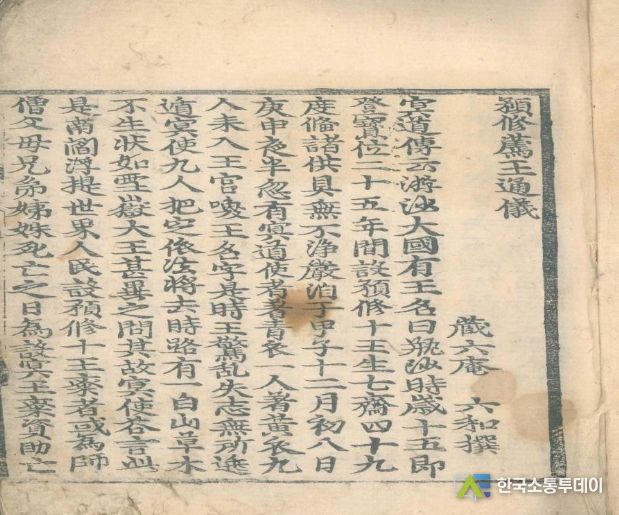 預修薦王通儀
藏六庵 六和撰
冥道傳云游沙大國有王名曰甁沙時歲十五即
登寶位二十五年間設預修十王生七齋四十九
度俻諸供具無不浄嚴洎于甲子十二月初八日
庚申夜半忽有冥道使者着青衣一人着黄衣九
人来入王宮喚王名字是時王驚乱失志無所進
道冥使九人把定依法將去時路有一白山草木
不生狀如壄嶽大王甚異之問其故冥使答言此
是南閻浮提世界人民設預修十王齋者或為師
僧父母兄弟姊妹死亡之日為設冥王齋資助亡
한국소통투데이